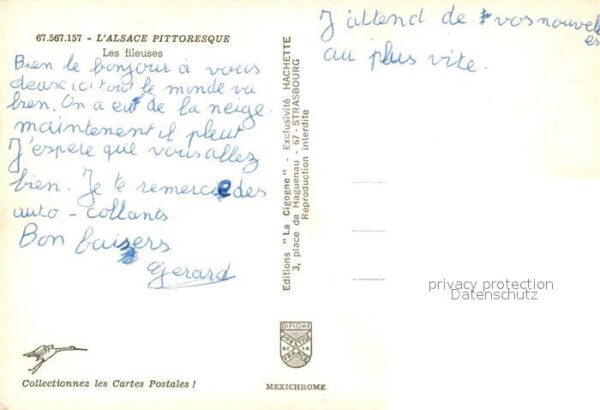 67.567.157 - L'ALSACE PITTORESQUE
Les fileuses
Bien le bonjour à vous
deux ici tout le monde va
bien. On a eut de la neige
maintenent il pleut
J'espère que vous allez
bien. Je te remerce des
auto-collants
Bon baisers
Gerard
J'attend de vos nouvel
es
au plus vite.
Editions "La Cigogne" - Exclusivité HACHETTE
3, place de Haguenau - 67-STRASBOURG
Reproduction interdite
privacy protection
Datenschutz
DIPLOME
PRESTIGE
DE LA
FRANCE
Collectionnez les Cartes Postales !
MEXICHROME